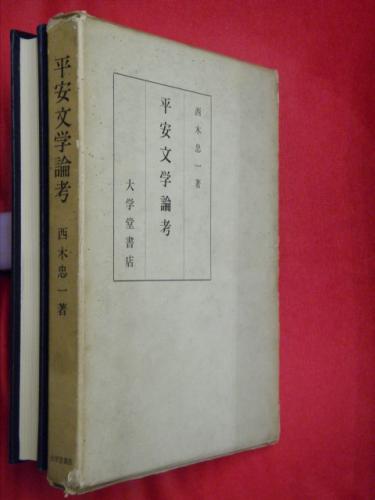 平安文学論考
西木忠一著
西木忠一著
平安文学論考
大学堂書店
大学堂書店